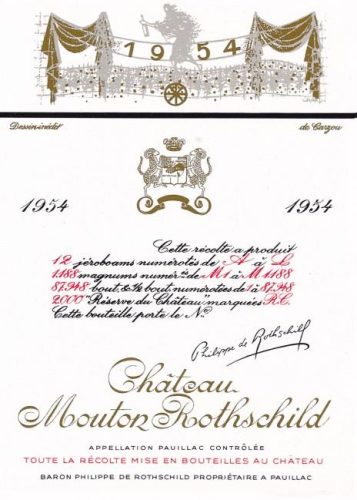 1954
Dessin inédit de Carzou
1954 1954
Cette récolte a produit
12 jéroboams numérotés de A à L
1.188 magnums numér.és de M1 à M1.188
87.948 bout. et ½ bout. numérotées de 1 à 87.948
2.000 "Réserve du Château" marquées R.C.
Cette bouteille porte le No.
Philippe de Rothschild
Château
Mouton Rothschild
APPELLATION PAUILLAC CONTRÔLÉE
TOUTE LA RÉCOLTE MISE EN BOUTEILLES AU CHÂTEAU
BARON PHILIPPE DE ROTHSCHILD PROPRIÉTAIRE A PAUILLAC